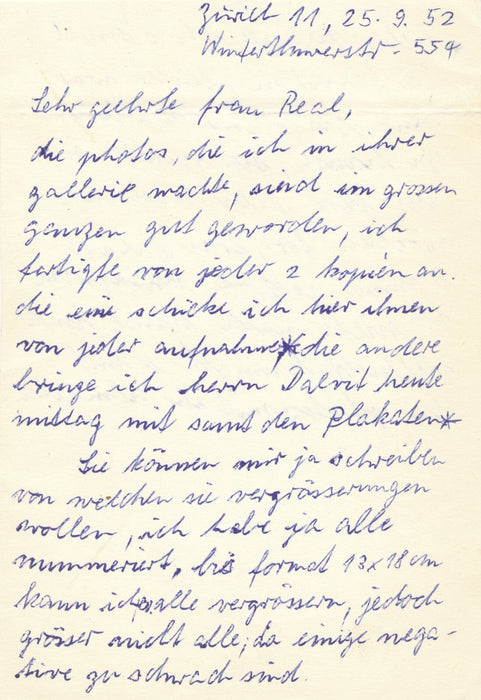 Zürich 11, 25. 9. 52
Winterthurerstr. 554
Sehr geehrte frau Real,
die photos, die ich in ihrer
gallerie machte, sind im grossen
ganzen gut geworden, ich
fertigte von jeder 2 kopien an.
die eine schicke ich hier ihnen
von jeder aufnahme, die andere
bringe ich herrn Dalvit heute
mittag mit samt den Plakaten*
Sie können mir ja schreiben
von welchen sie vergrösserungen
wollen, ich habe ja alle
nummeriert, bis format 13x18 cm
kann ich alle vergrössern, jedoch
grösser nicht alle, da einige nega-
tive zu schwach sind.